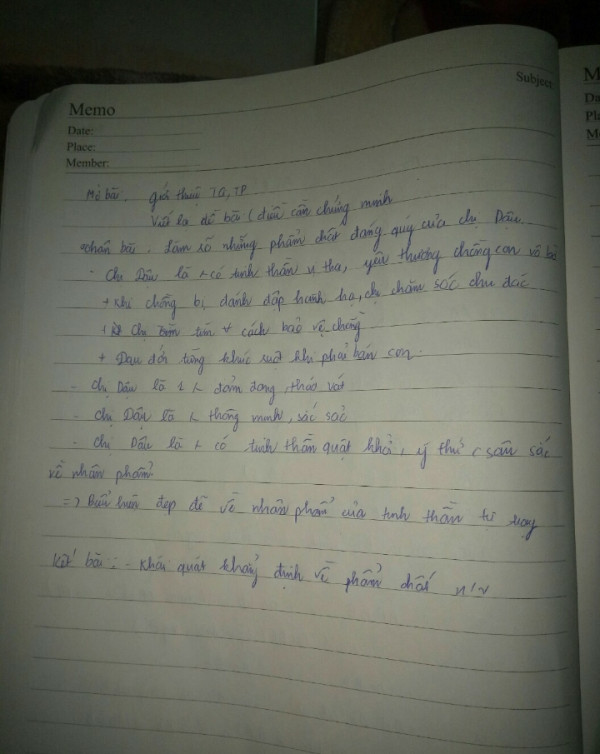 Subject:
Memo
Date:
Place:
Member:
M
Da
Pla
M
Mở bài. giới thiệu TG, TP
Viết la đề bài ( điều cần chứng minh
thân bài. Làm rõ những phẩm chất đáng quý của chị Dậu.
- Chị Dậu là có tinh thần vị tha, yêu thương chồng con vô bờ
+ Khi chồng bị đánh đập hành hạ, chị chăm sóc chu đáo
+ chị tìm cách bảo vệ chồng
+ Đau đớn từng khúc ruột khi phải bán con.
- chị Dậu là 1 đảm đang, tháo vát
- chị Dậu là thông minh, sắc sảo
- chị Dậu là có tinh thần quật khởi, ý thức sâu sắc
về nhân phẩm
=> Biểu hiện đẹp đẽ về nhân phẩm của tinh thần tự
Kết bài: - Khái quát khẳng định về phẩm chất